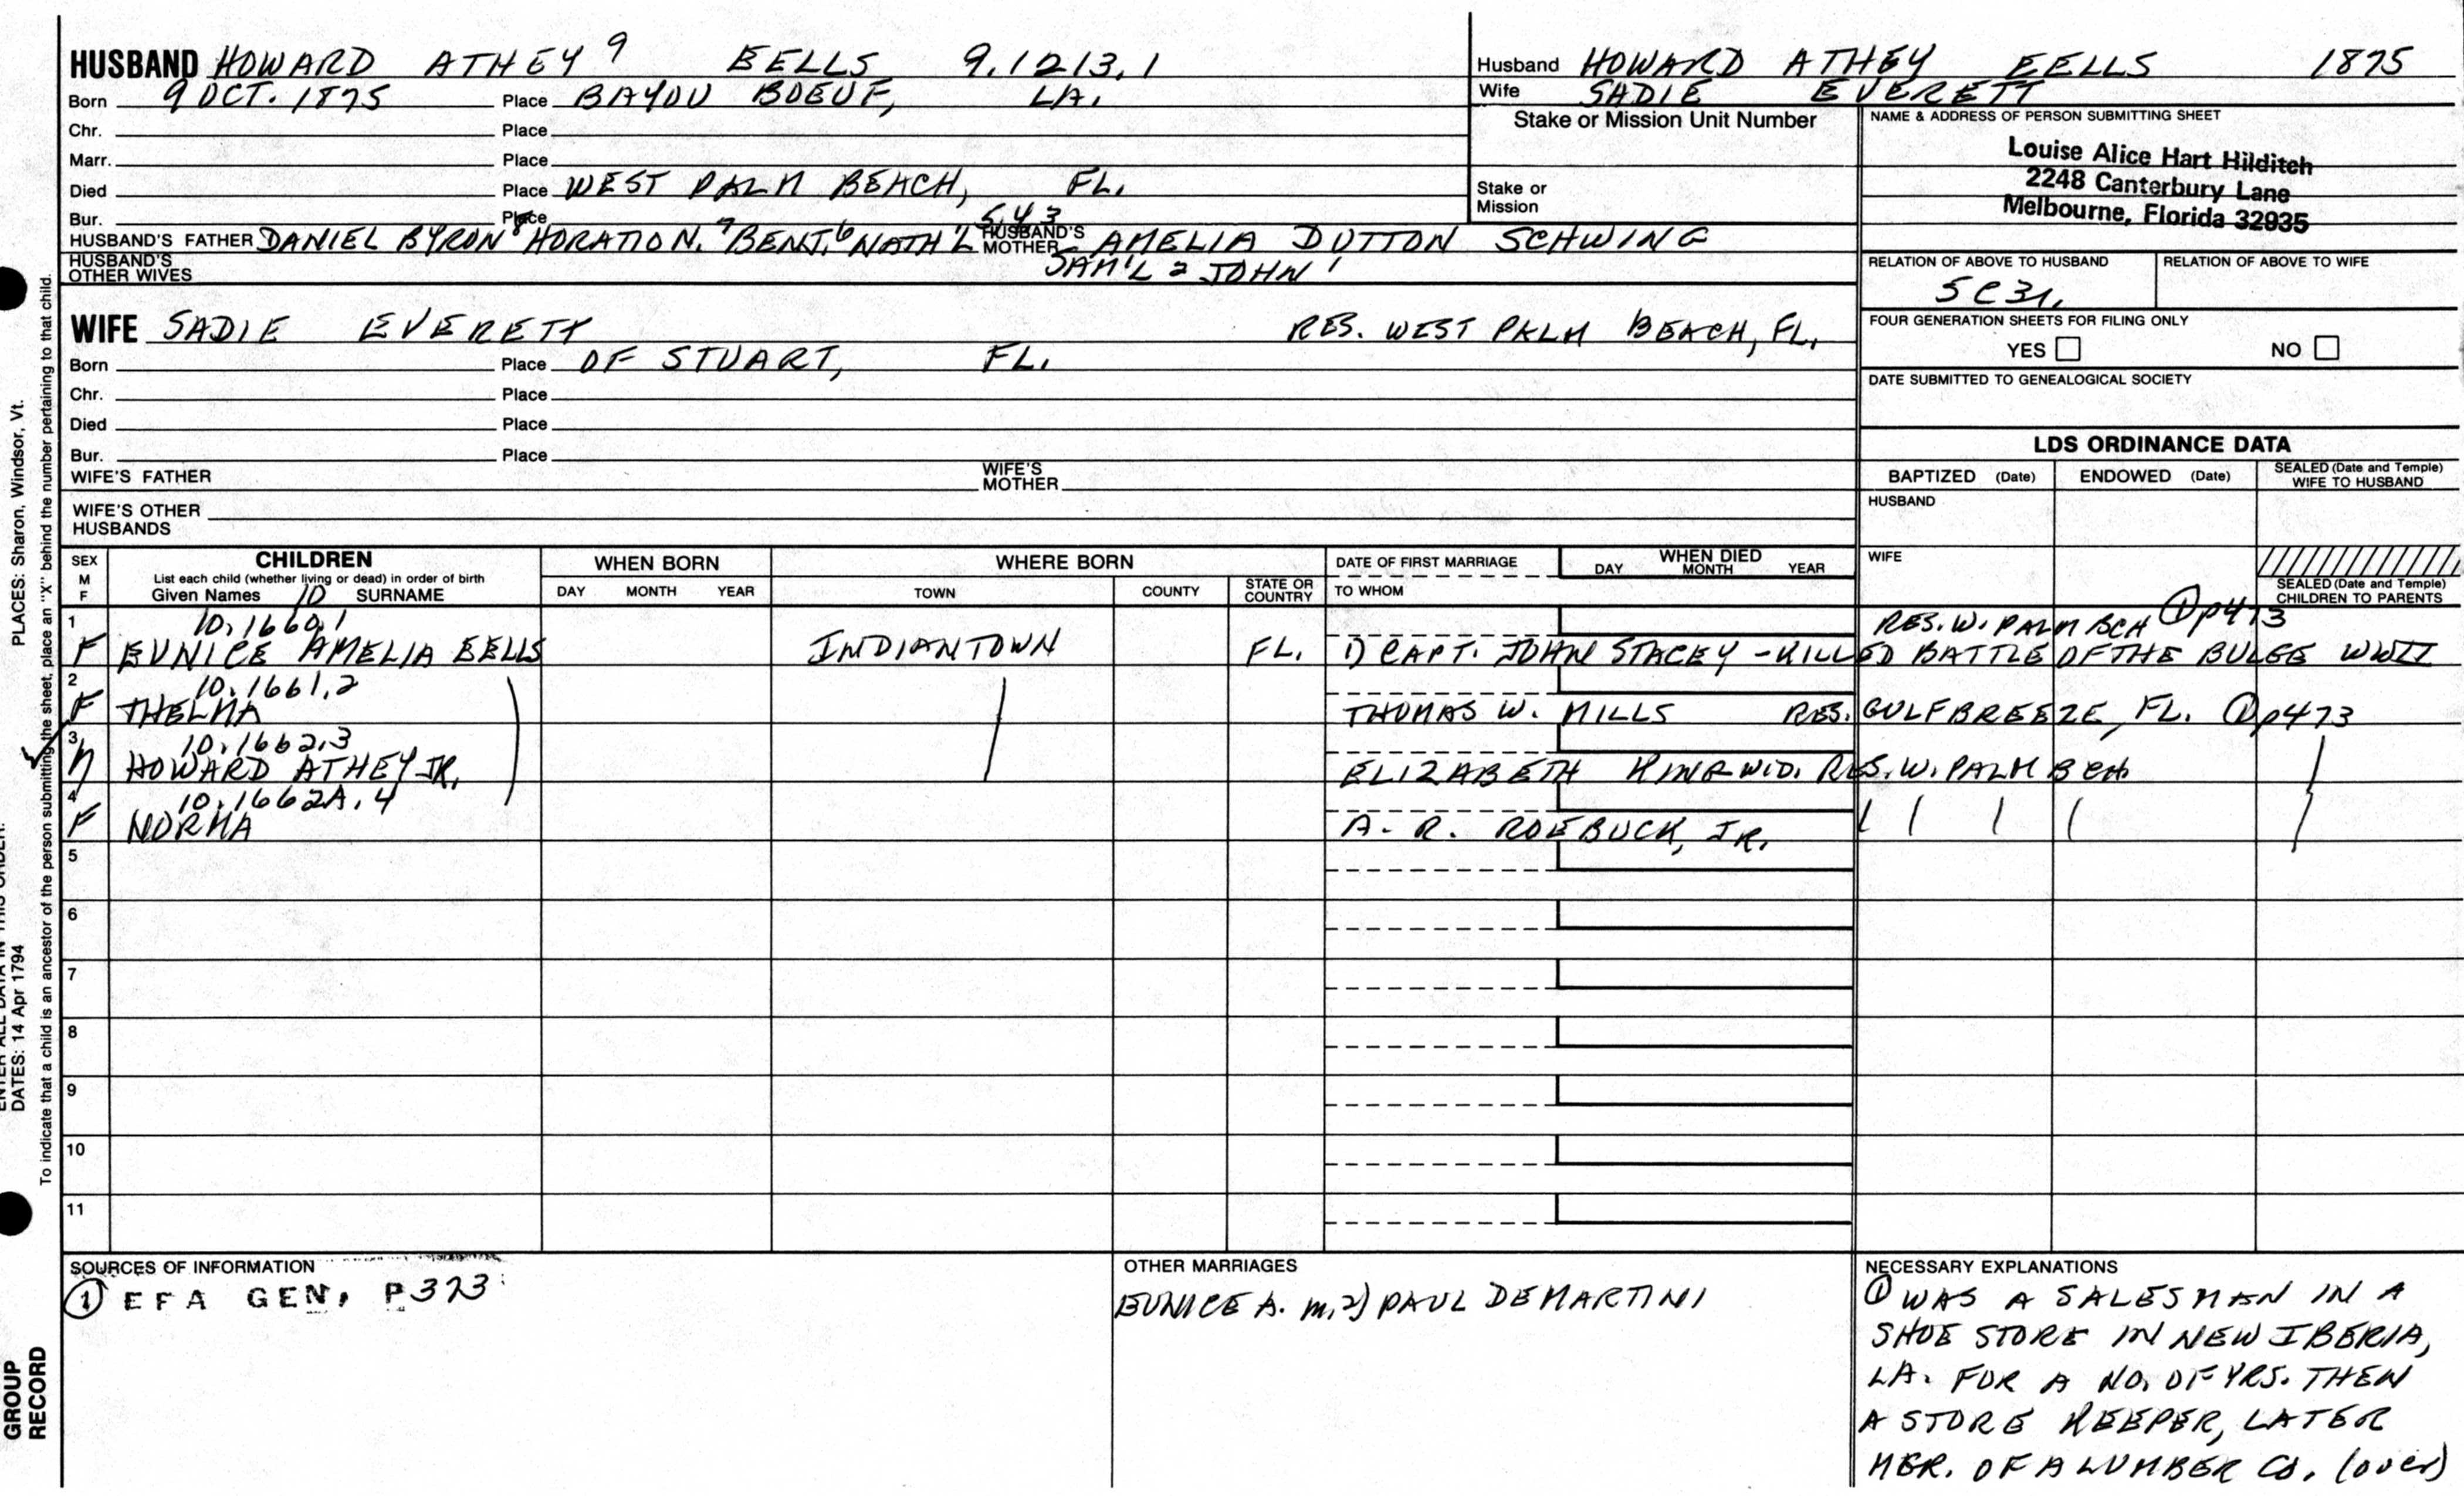 HUSBAND HOWARD ATHEY 9 EELLS 9.1213.1
Born 9 OCT. 1875 Place BAYOU BOEUF, LA.
Chr. Place
Marr. Place
Died Place WEST PALM BEACH, FL.
Bur. Place
HUSBAND'S FATHER DANIEL BYRON 8 HORATION. 7 BENJ. 6 NATH'L 5 4 3 HUSBAND'S MOTHER AMELIA DUTTON SCHWING
HUSBAND'S OTHER WIVES SAM'L 2 JOHN 1
Husband HOWARD ATHEY EELLS 1875
Wife SADIE EVERETT
Stake or Mission Unit Number
Stake or Mission
NAME & ADDRESS OF PERSON SUBMITTING SHEET
Louise Alice Hart Hilditch
2248 Canterbury Lane
Melbourne, Florida 32935
RELATION OF ABOVE TO HUSBAND RELATION OF ABOVE TO WIFE
5C3r.
FOUR GENERATION SHEETS FOR FILING ONLY
YES NO
DATE SUBMITTED TO GENEALOGICAL SOCIETY
WIFE SADIE EVERETT RES. WEST PALM BEACH, FL.
Born Place OF STUART, FL.
Chr. Place
Died Place
Bur. Place
WIFE'S FATHER WIFE'S MOTHER
WIFE'S OTHER HUSBANDS
LDS ORDINANCE DATA
BAPTIZED (Date) ENDOWED (Date) SEALED (Date and Temple) WIFE TO HUSBAND
HUSBAND
WIFE
SEALED (Date and Temple) CHILDREN TO PARENTS
SEX M F
CHILDREN
List each child (whether living or dead) in order of birth
Given Names 10 SURNAME
WHEN BORN
DAY MONTH YEAR
WHERE BORN
TOWN COUNTY STATE OR COUNTRY
DATE OF FIRST MARRIAGE
TO WHOM
WHEN DIED
DAY MONTH YEAR
1 10.1660.1 RES. W. PALM BCH ① p473
F EUNICE AMELIA EELLS INDIANTOWN FL. 1) CAPT. JOHN STACEY - KILLED BATTLE OF THE BULGE WWII
2 10.1661.2
F THELMA THOMAS W. MILLS RES. GULFBREEZE, FL. ① p473
3 10.1662.3
M HOWARD ATHEY JR. ELIZABETH WID. RES. W. PALM BCH
4 10.1662A.4
F NORMA A. R. ROEBUCK, JR.
5
6
7
8
9
10
11
SOURCES OF INFORMATION
① EFA GEN, P373
OTHER MARRIAGES
EUNICE A. m. 2) PAUL DEMARTINI
NECESSARY EXPLANATIONS
① WAS A SALESMAN IN A
SHOE STORE IN NEW IBERIA,
LA. FOR A NO. OF YRS. THEN
A STORE KEEPER, LATER
MGR. OF A LUMBER CO. (over)
PLACES: Sharon, Windsor, Vt.
DATES: 14 Apr 1794
To indicate that a child is an ancestor of the person submitting the sheet, place an "X" behind the number pertaining to that child.
GROUP
RECORD